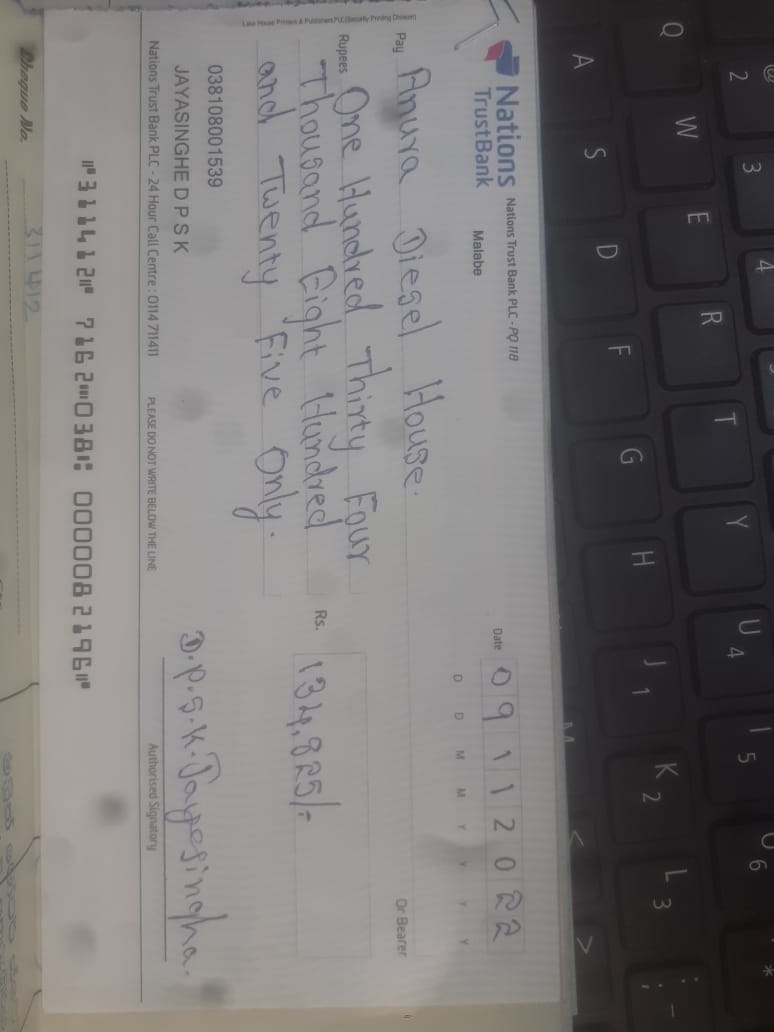 Lake House Printers & Publishers PLC (Security Printing Division)
Nations
TrustBank
Nations Trust Bank PLC - PQ 118
Malabe
Date 09112022
D D M M Y Y Y Y
Pay Anura Diesel House.
Or Bearer
Rupees One Hundred Thirty Four
Thousand Eight Hundred
and Twenty Five Only.
Rs. 134,825/-
038108001539
JAYASINGHE D P S K
D.P.S.K. Jayasingha.
Nations Trust Bank PLC - 24 Hour Call Centre : 0114 711411
PLEASE DO NOT WRITE BELOW THE LINE
Authorised Signatory
⑈311412⑈ 7162⑉038⑆ 0000082196⑈
Cheque No. 311412
@
2
3
4
Q
W
E
R
T
Y
U 4
I 5
O 6
*
A
S
D
F
G
H
J 1
K 2
L 3
: ;
-
M
<
>